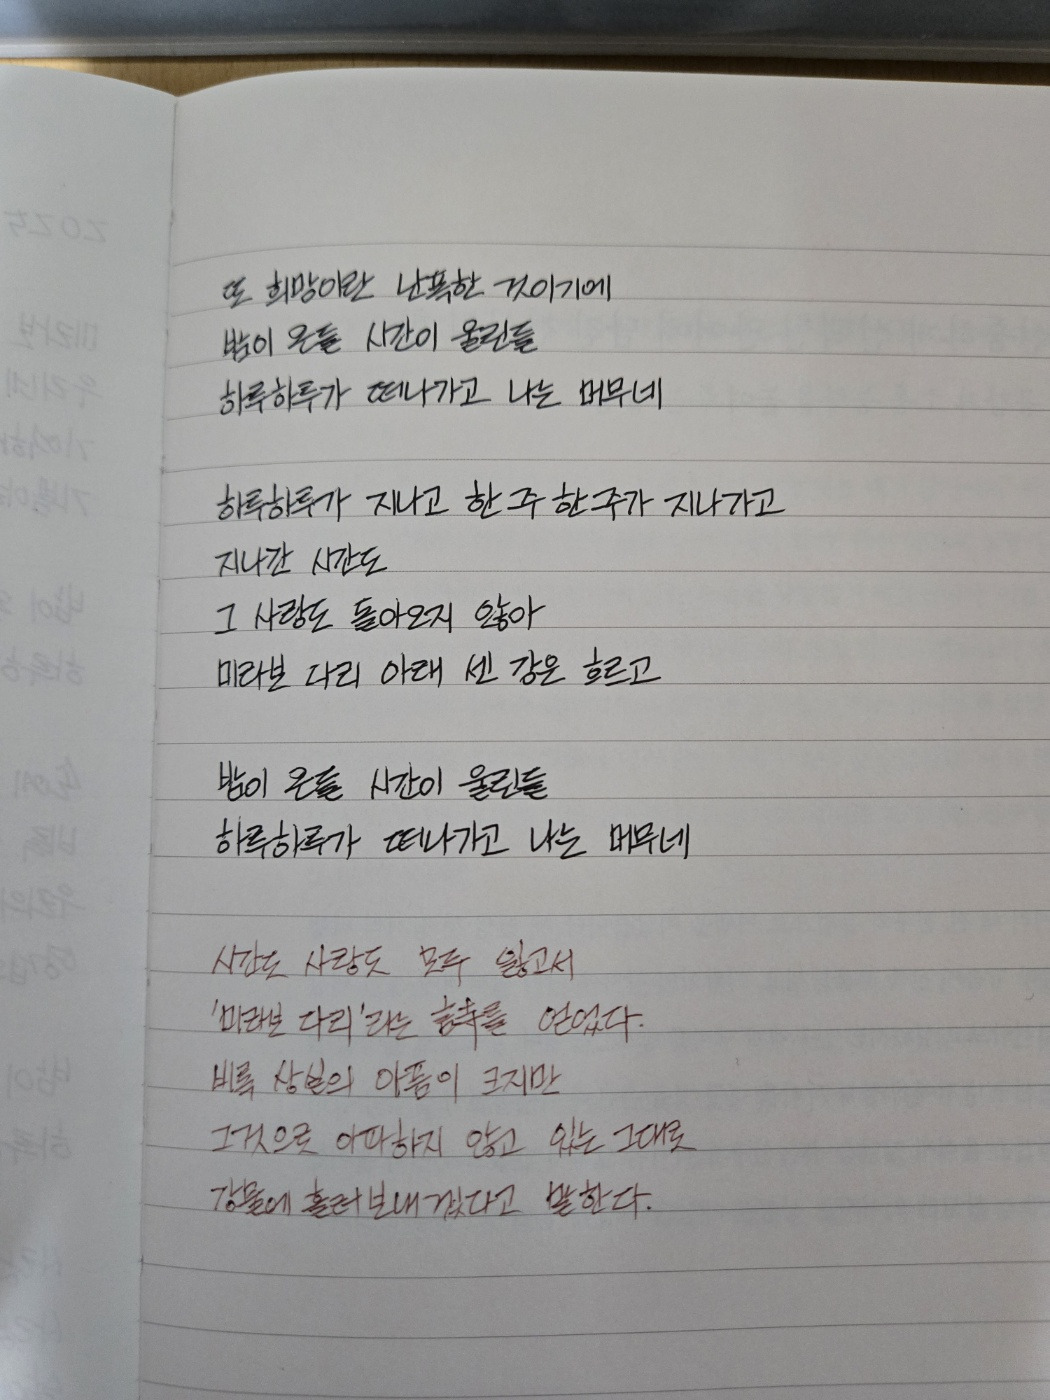 또 희망이란 난폭한 것이기에
밤이 온들 시간이 울린들
하루하루가 떠나가고 나는 머무네
하루하루가 지나고 한 주 한 주가 지나가고
지나간 시간도
그 사랑도 돌아오지 않아
미라보 다리 아래 센 강은 흐르고
밤이 온들 시간이 울린들
하루하루가 떠나가고 나는 머무네
시간도 사랑도 모두 잃고서
'미라보 다리'라는 함축를 얻었다.
비록 상실의 아픔이 크지만
그것으로 아파하지 않고 있는 그대로
강물에 흘려보내겠다고 말한다.